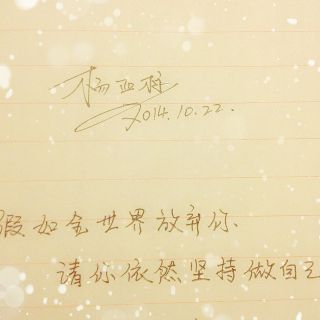 杨亚梅
2014.10.22.
假如全世界放弃你、
请你依然坚持做自己